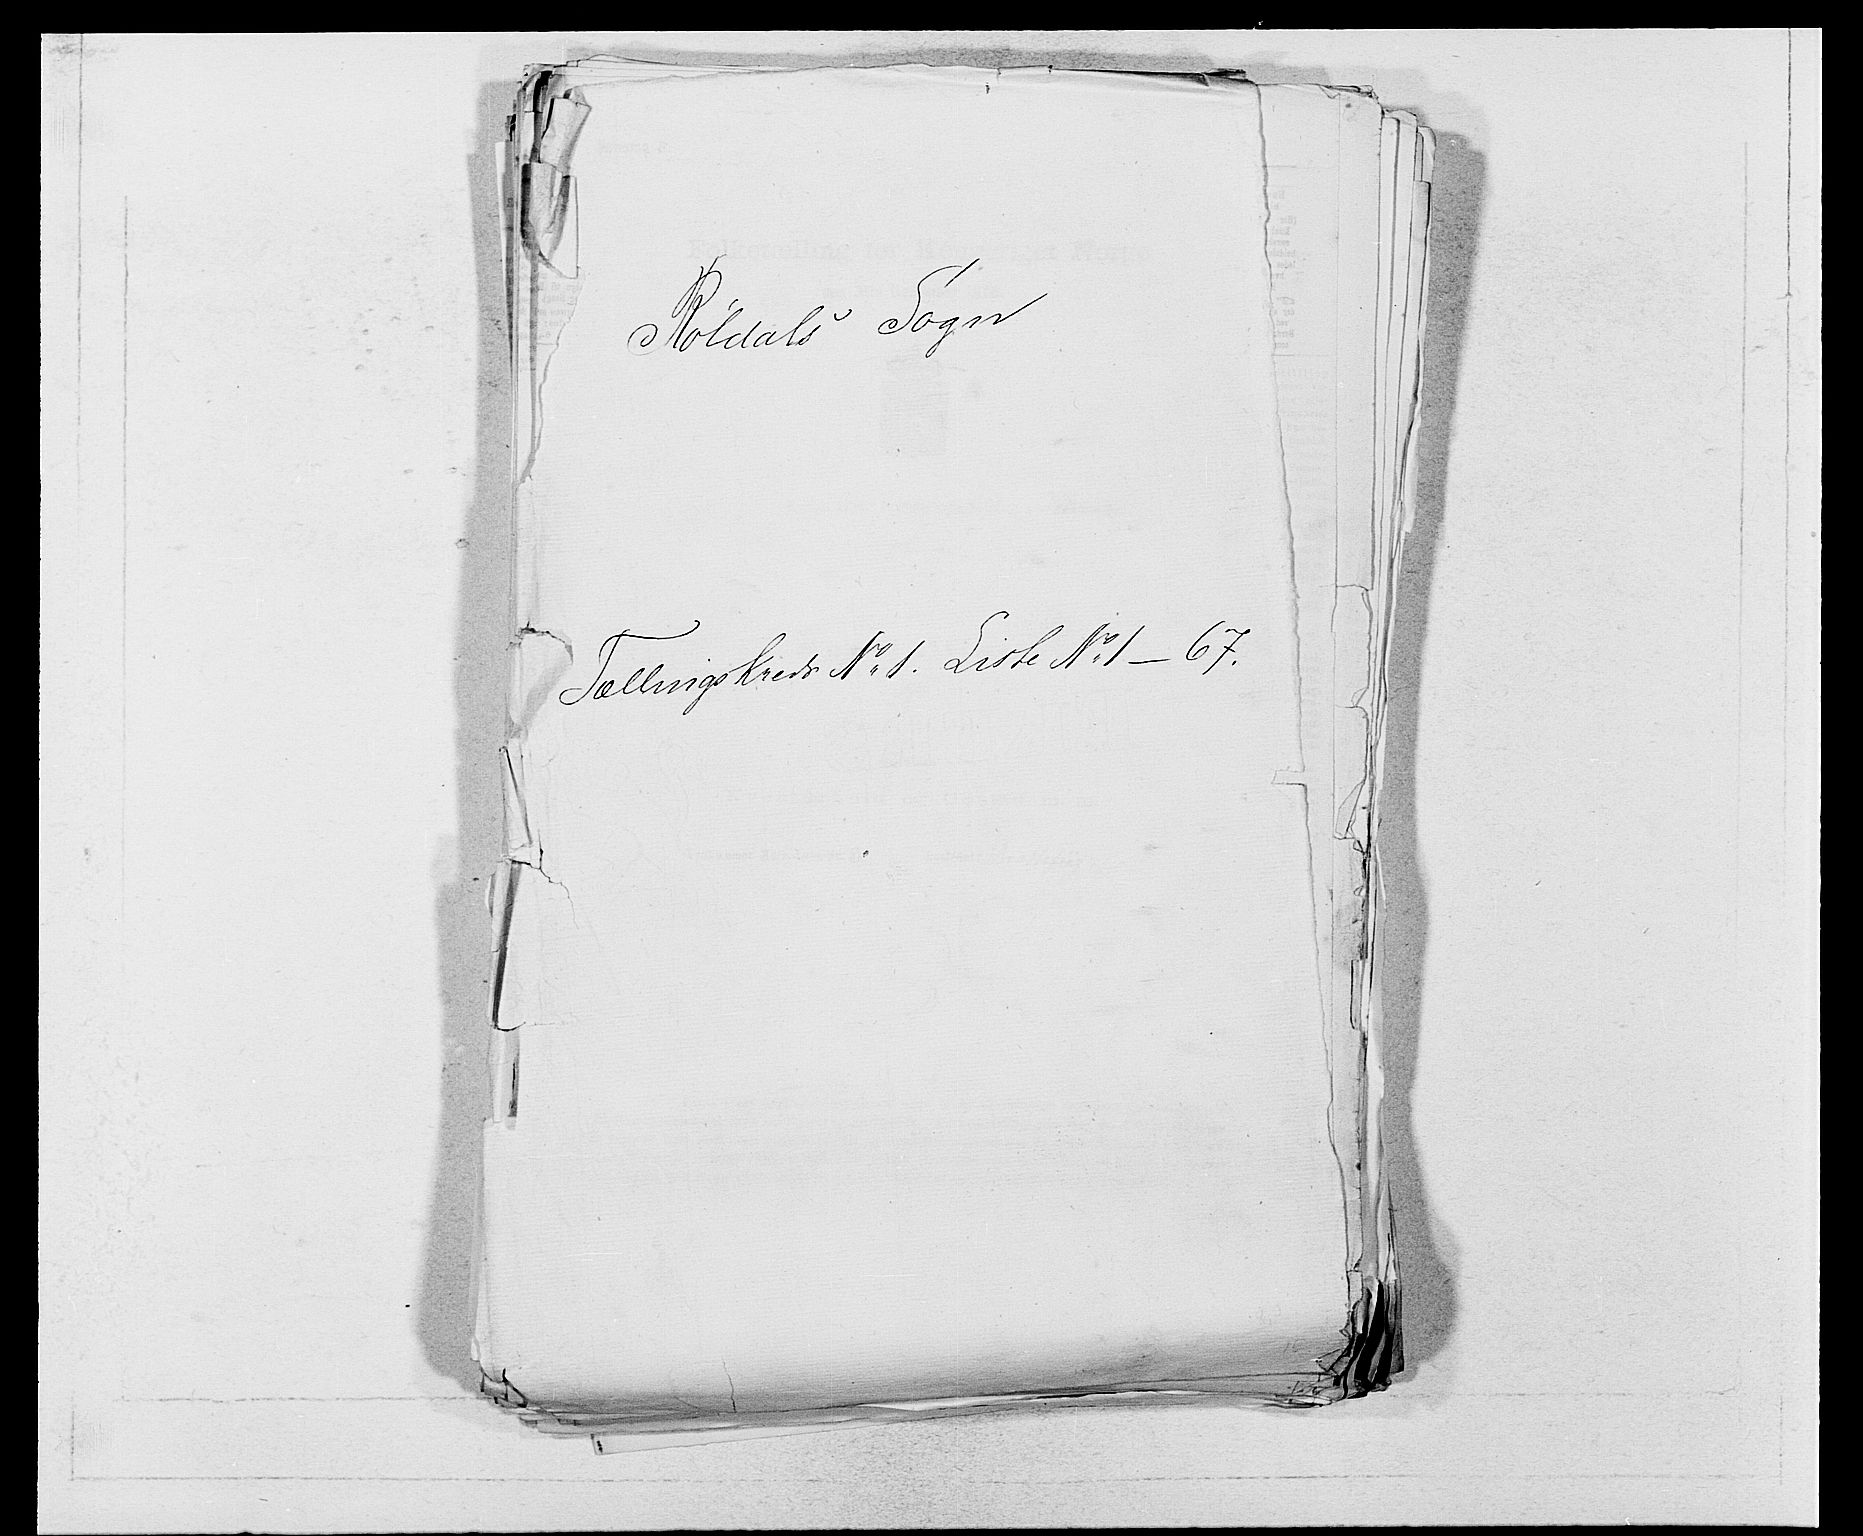 Röldals Sogn
Tællingskreds No 1. Liste No 1 – 67.